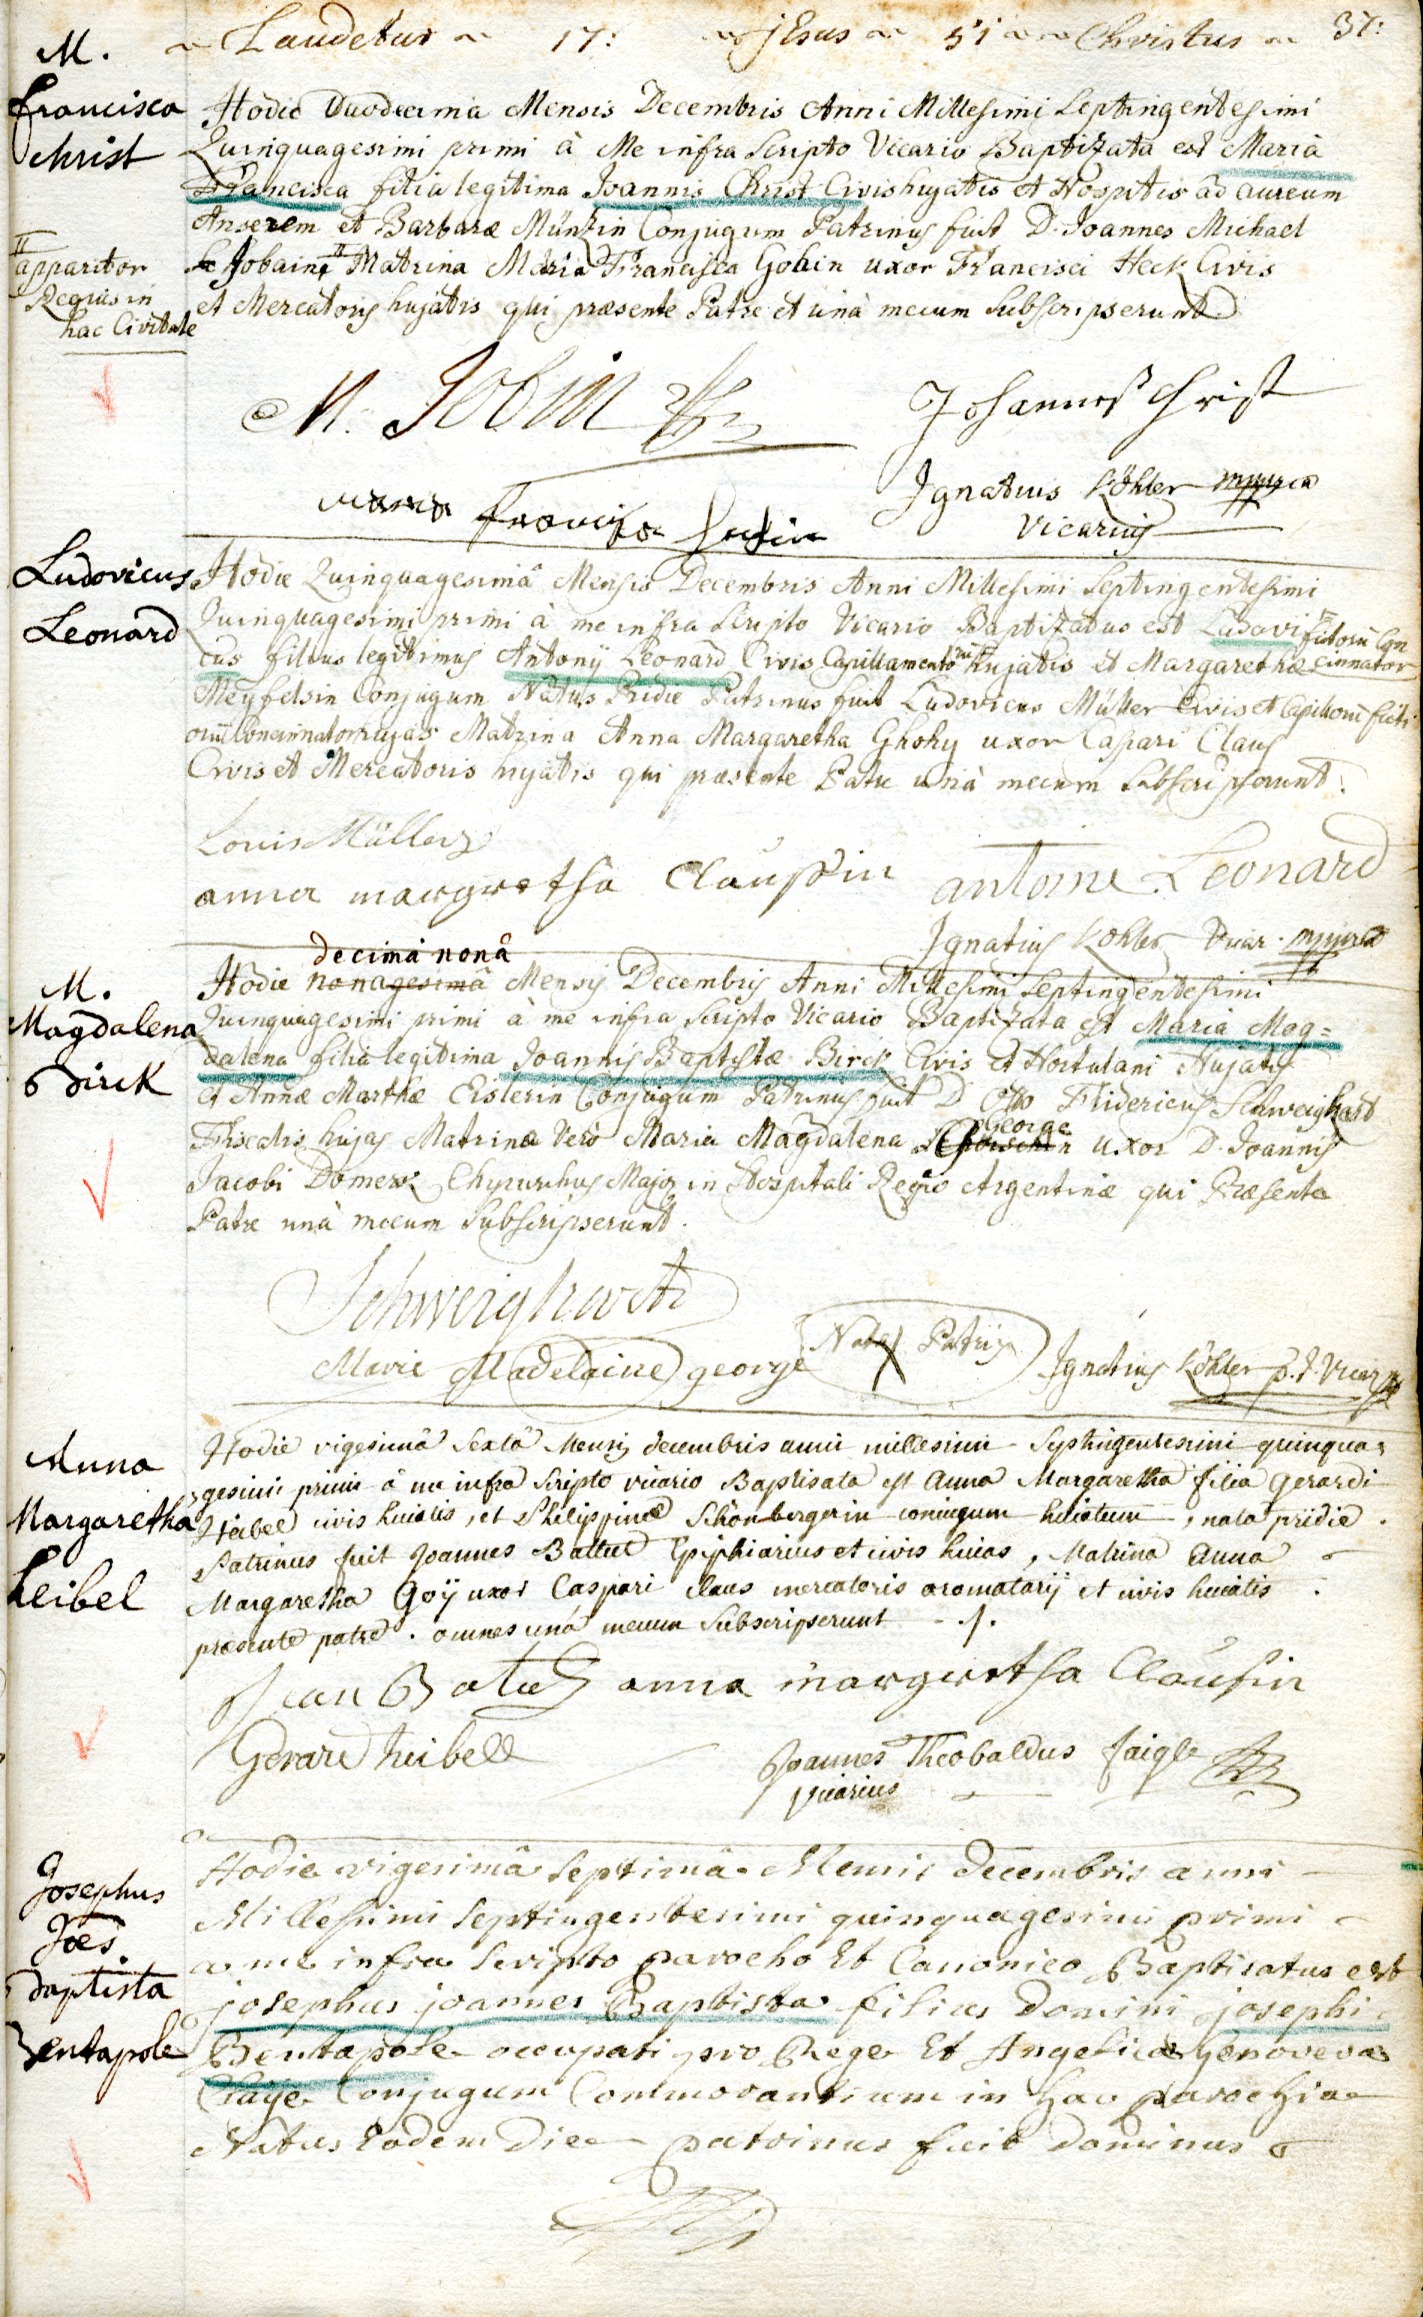 Laudetur 17: jEsus 51 Christus 37:
M.
Francisca
Christ
Hodie Duodecima Mensis Decembris Anni Millesimi Septingentesimi
Quinquagesimi primi à Me infra Scripto Vicario Baptizata est Maria
Francisca filia legitima Joannis Christ Civis hujatis et Hospitis ad aureum
Anserem et Barbaræ Müntzin Conjugum Patrinus fuit D. Joannes Michael
Jobain Matrina Maria Francisca Gobin uxor Francisci Heck Civis
et Mercatoris hujatis qui præsente Patre et unà mecum Subscripserunt
II
apparitor
Regius in
hac Civitate
M. Jobin
Johannes Christ
Ignatius Köhler
Vicarius
Maria Francisca
Ludovicus
Leonard
Hodie Quinquagesimâ Mensis Decembris Anni Millesimi Septingentesimi
Quinquagesimi primi à me infra Scripto Vicario Baptizatus est Ludovi
cus filius legitimus Antonij Leonard Civis Capillamento hujatis et Margarethæ
fictorū Con
cinnator
Meyfelsin Conjugum Natus Pridie Patrinus fuit Ludovicus Müller Civis et Capillorū ficti
oriū Concinnator hujas Matrina Anna Margaretha Ghohy uxor Caspari Claus
Civis et Mercatoris hujatis qui præsente Patre unà mecum Subscripserunt.
Louis Müller
anna margretha Claussin
antoine Leonard
Ignatius Kohler Vicar.
M.
Magdalena
Birck
decimà nonâ
Hodie nonagesimâ Mensis Decembris Anni Millesimi Septingentesimi
Quinquagesimi primi à me infra Scripto Vicario Baptizata est Maria Mag=
dalena filia legitima Joannis Baptistæ Birck Civis et Hortulani Hujatis
et Annæ Marthæ Eislerin Conjugum Patrinus fuit D Otto Fridericus Schweighart
Fiscalis hujas Matrina Verò Maria Magdalena George uxor D. Joannis
Jacobi Domer Chyrurchus Major in Hospitali Regio Argentinæ qui Præsente
Patre unà mecum Subscripserunt.
Schweighart
Marie Madelaine george
Nota X Patris
Ignatius Köhler p.t. Vicar
Anna
Margaretha
Heibel
Hodie vigesimâ Sextâ Mensis decembris anni millesimi Septingentesimi quinqua
gesimi primi â me infra Scripto vicario Baptisata est Anna Margaretha filia Gerardi
Heibel civis huiatis, et Philippinæ Schönbergerin coniugum huiatum, nata pridie.
Patrinus fuit Joannes Battut Ephiarius et civis huias, Matrina Anna
Margaretha Goÿ uxor Caspari Claus mercatoris aromatarij et civis huiatis.
præsente patre. omnes unâ mecum Subscripserunt
Jean Batut anna margretha Clausin
Gerard heibell
Joannes Theobaldus faigle
vicarius
Josephus
Joes
Baptista
Bentapole
Hodie vigesimâ Septimâ Mensis Decembris anni
Millesimi Septingentesimi quinquagesimi primi
a me infra Scripto parocho Et Canonico Baptisatus est
josephus joannes Baptista filius Domini josephi
Bentapole occupati pro Rege Et Angelicæ genovevæ
Claye Conjugum Commorantium in hac parochia
Natus Eodem Die patrinus fuit dominus